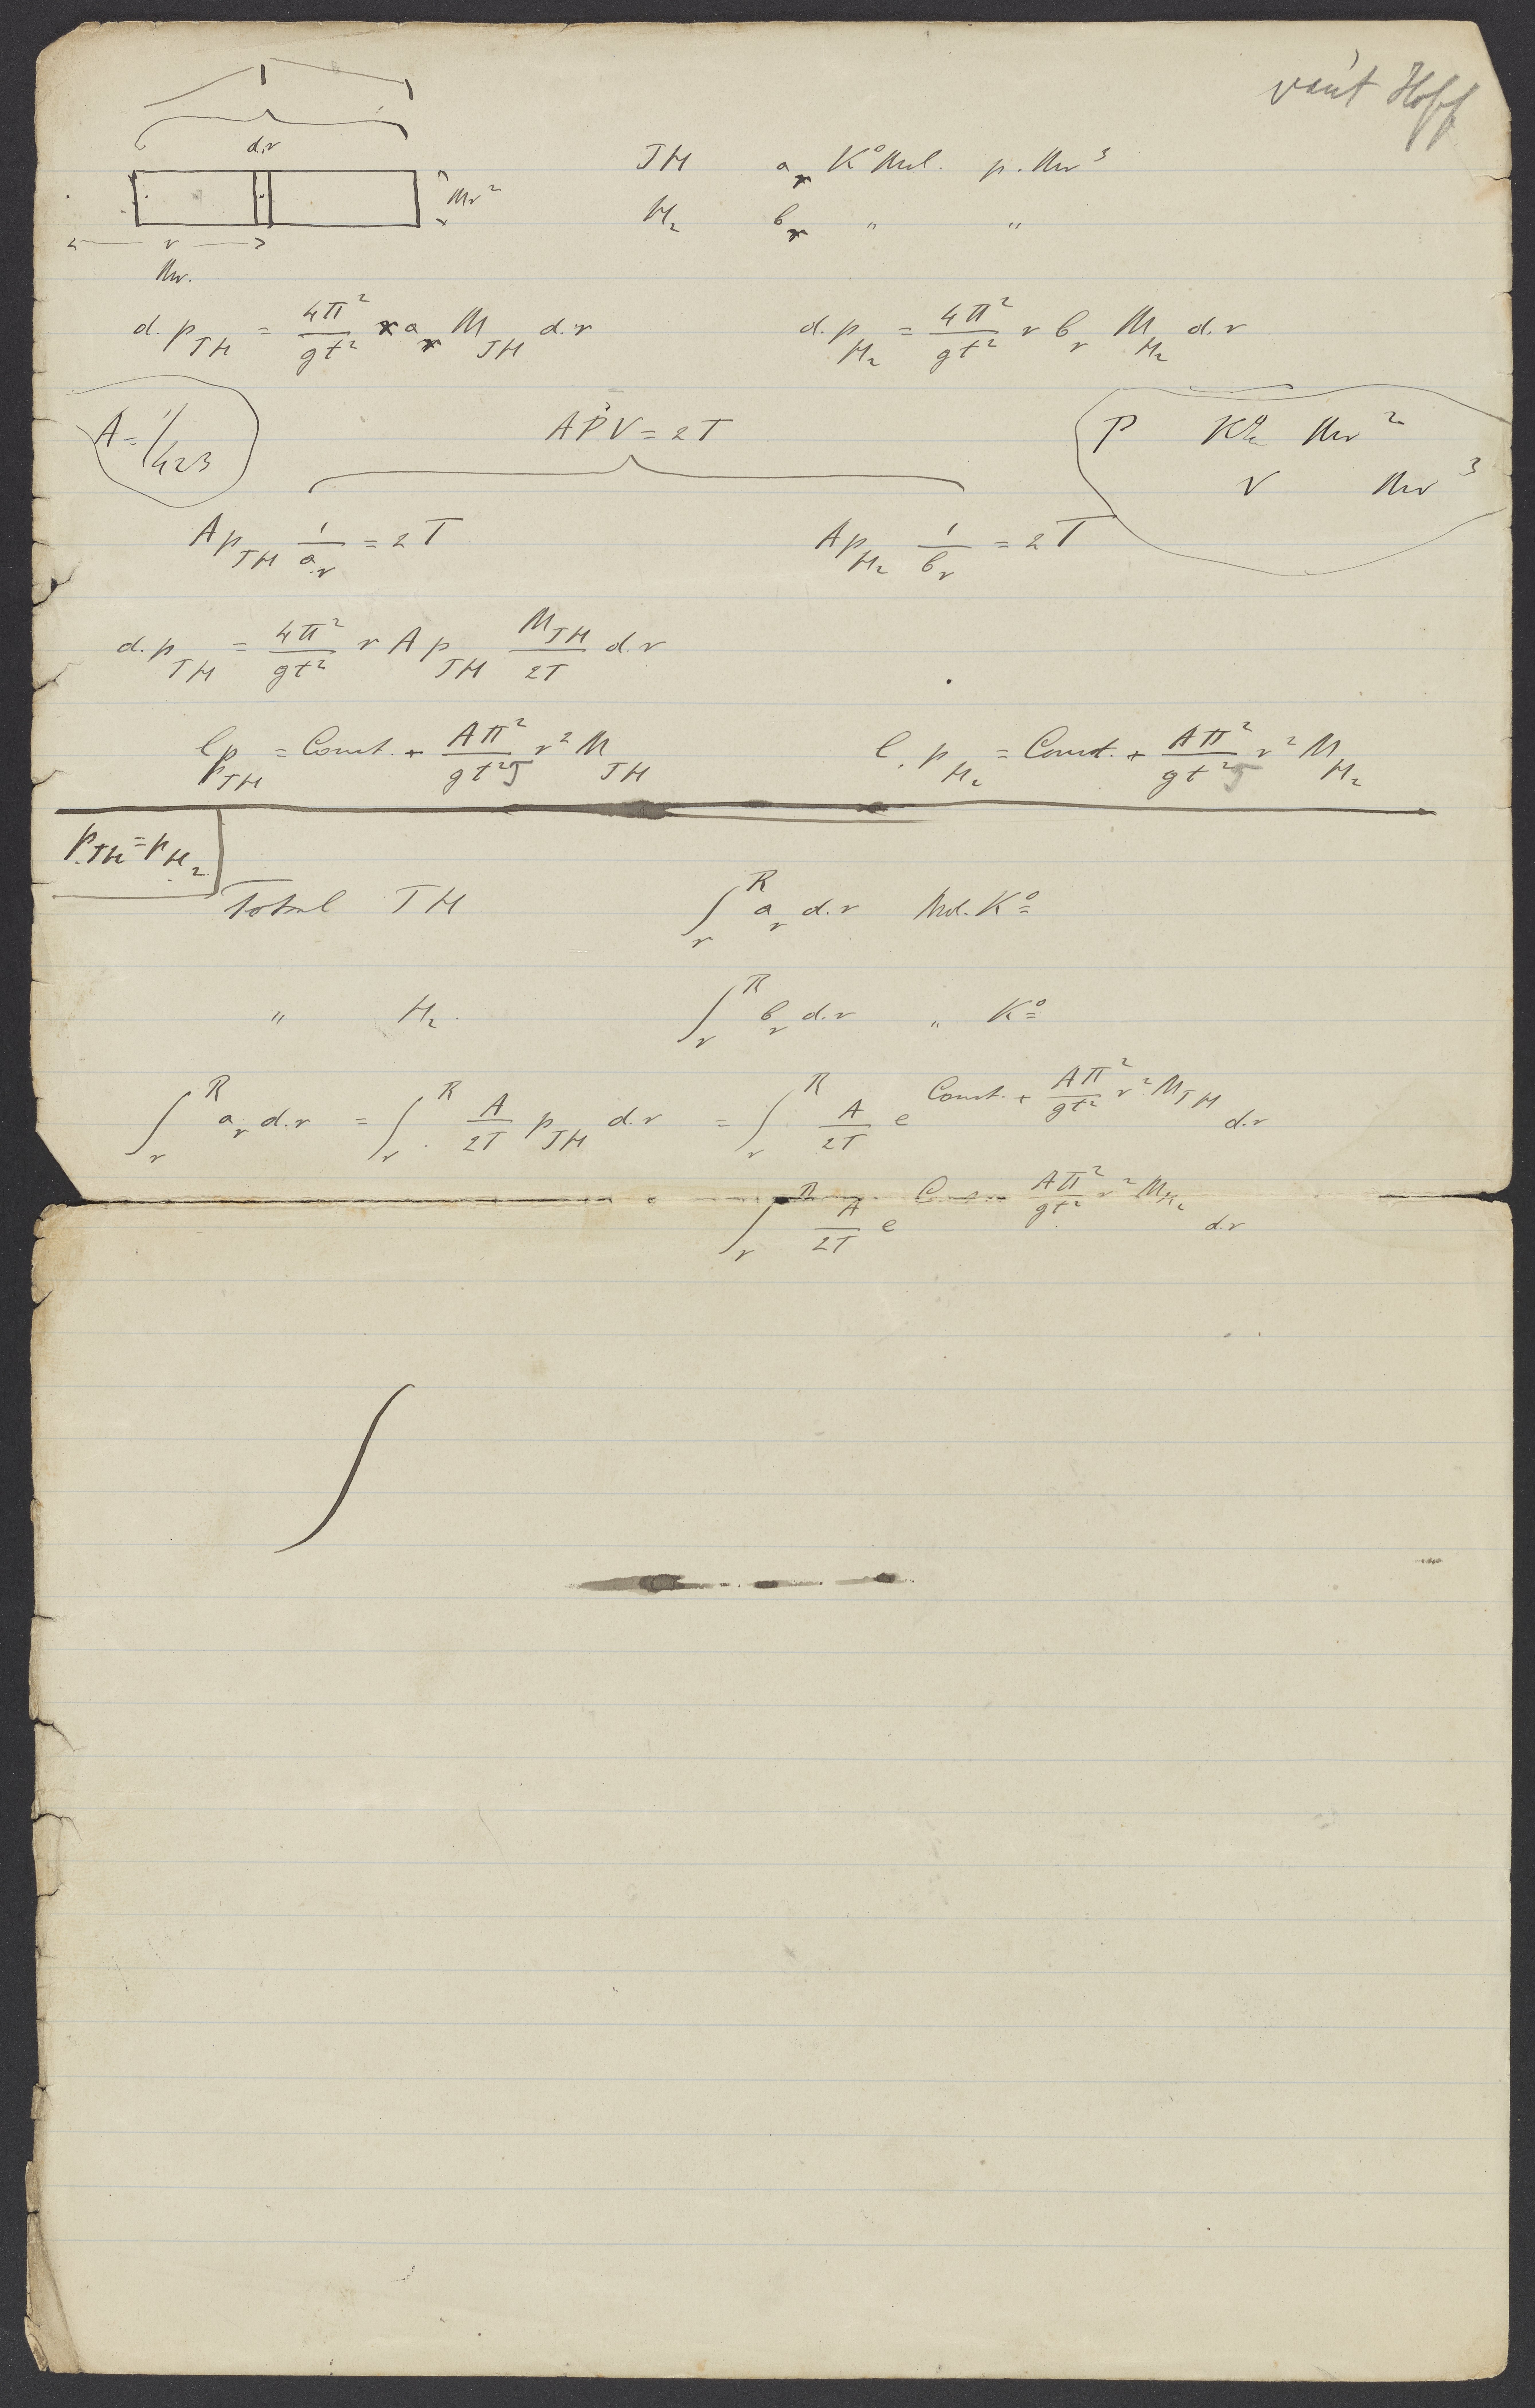 van't Hoff
d.r
JH a_r K° Mol. p. Mr³
Mr²
H₂ b_r " "
r
Mr.
d.p_JH = 4π²/gt² r a_r M_JH d.r d.p_H₂ = 4π²/gt² r b_r M_H₂ d.r
A = 1/423 APV = 2T P Ko Mr²
V Mr³
A p_JH 1/a_r = 2T A p_H₂ 1/b_r = 2T
d.p_JH = 4π²/gt² r A p_JH M_JH/2T d.r
l p_JH = Const. + Aπ²/gt²T r² M_JH l. p_H₂ = Const. + Aπ²/gt²T r² M_H₂
p_JH = p_H₂
Total JH ∫_r^R a_r d.r Mol. K°
" H₂. ∫_r^R b_r d.r " K°
∫_r^R a_r d.r = ∫_r^R A/2T p_JH d.r = ∫_r^R A/2T e^(Const. + Aπ²/gt² r² M_JH) d.r
∫_r^R A/2T e^(Cons Aπ²/gt² r² M_H₂) d.r
∫